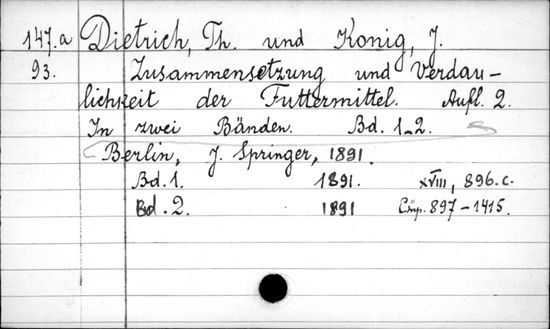 147.a Dietrich, Th. und Konig, J.
93. Zusammensetzung und Verdau-
lichkeit der Futtermittel. Aufl. 2.
In zwei Bänden. Bd. 1-2.
Berlin, J. Springer, 1891.
Bd. 1. 1891. XVIII, 896.c.
Bd. 2. 1891 Стр. 897-1415.